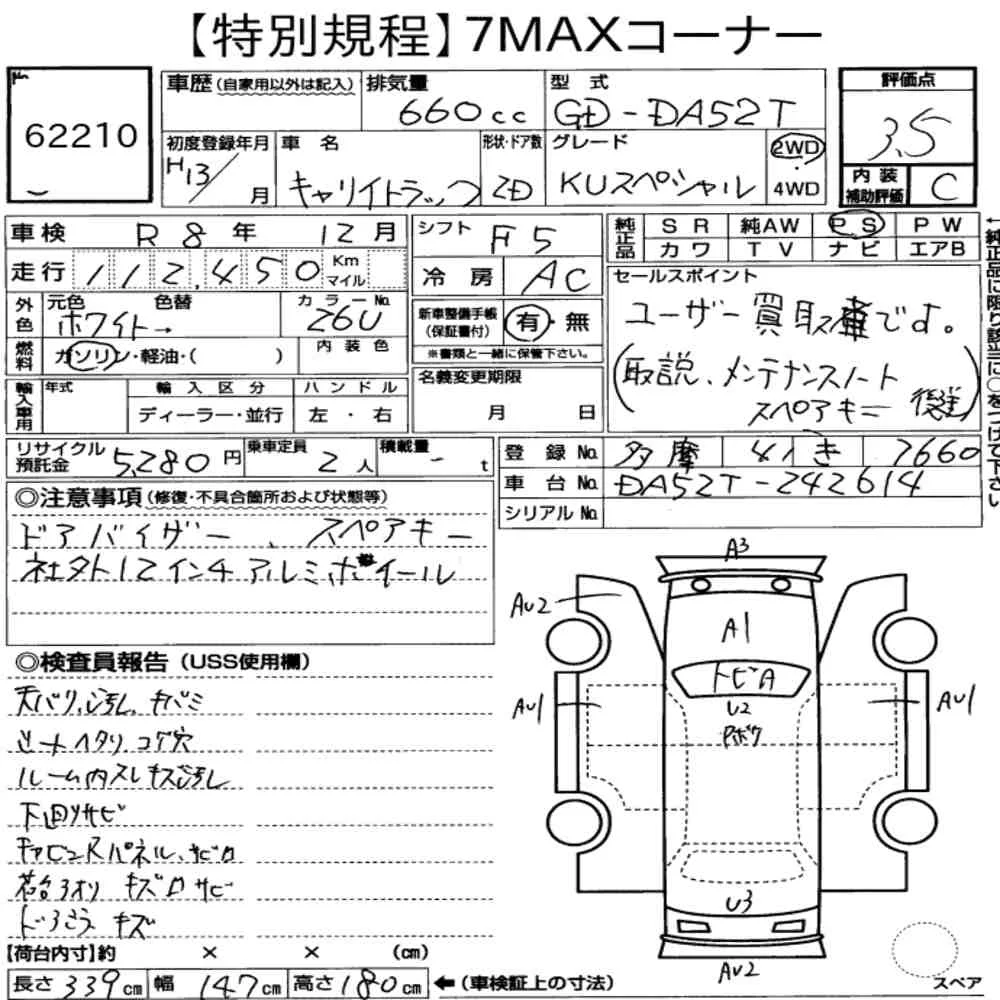 【特別規程】7MAXコーナー
No
62210
車歴(自家用以外は記入) 排気量 660cc 型式 GD-DA52T
評価点 3.5
内装補助評価 C
初度登録年月 H13/ 月 車名 キャリイトラック 形状・ドア数 2D グレード KUスペシャル 2WD 4WD
車検 R8年 12月
走行 112,450 Km マイル
シフト F5
冷房 AC
純正品 SR 純AW PS PW
カワ TV ナビ エアB
←純正品に限り該当に○をつけて下さい
外色 元色 ホワイト→ 色替 カラーNo. 26U
燃料 ガソリン・軽油・( ) 内装色
新車整備手帳(保証書付) 有・無
※書類と一緒に保管下さい。
セールスポイント
ユーザー買取車です。
(取説、メンテナンスノート
スペアキー 後送)
輸入車用 年式 輸入区分 ハンドル
ディーラー・並行 左・右
名義変更期限
月 日
リサイクル預託金 5,280円 乗車定員 2人 積載量 - t
登録No. 多摩 41 き 7660
車台No. DA52T-242614
シリアルNo.
◎注意事項(修復・不具合箇所および状態等)
ドアバイザー、スペアキー
社外12インチアルミホイール
◎検査員報告(USS使用欄)
天バリ、汚れ、キバミ
シートヘタリ コゲ穴
ルーム内スレキズ汚れ
下回りサビ
キャビンRパネル、サビ
荷台アオリ キズ サビ
キズ
A3
AU2
A1
トビA
U2
AU1
AU1
U3
AU2
スペア
【荷台内寸】約 × × (cm)
長さ 339cm 幅 147cm 高さ 180cm ←(車検証上の寸法)